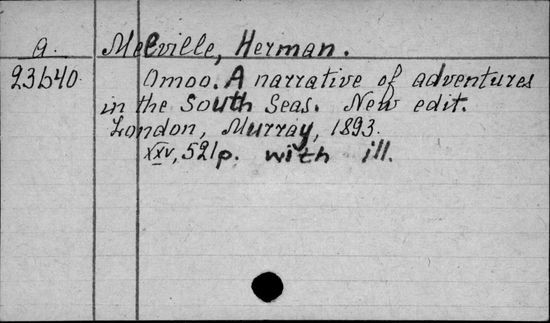 a. Melville, Herman.
23640. Omoo. A narrative of adventures
in the South Seas. New edit.
London, Murray, 1893.
XXV, 521p. with ill.